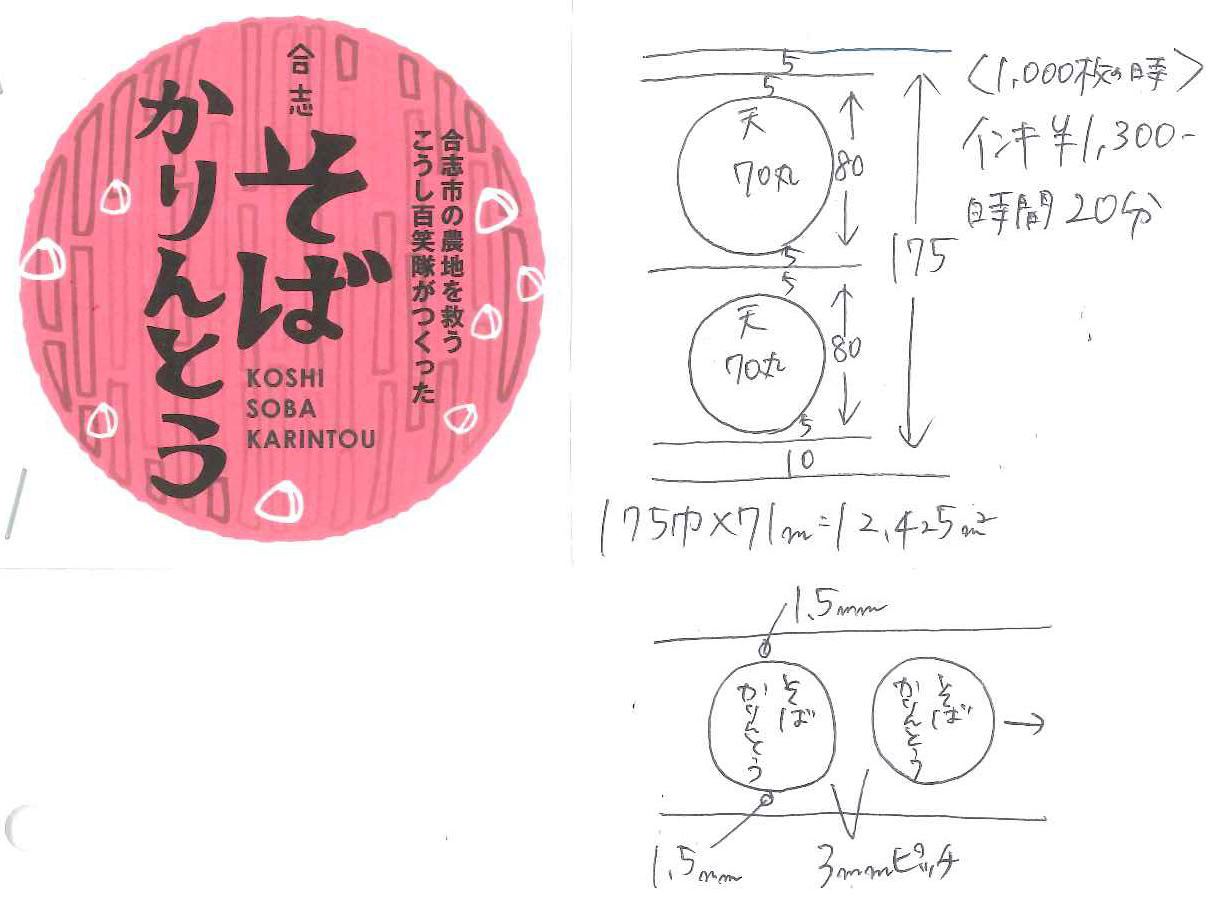 合志
そば
かりんとう
合志市の農地を救う
こうし百笑隊がつくった
KOSHI
SOBA
KARINTOU
5
5
天
70丸
80
5
5
天
70丸
80
5
10
175
〈1,000枚の時〉
インキ ¥1,300-
時間 20分
175巾×71m=12.425m²
1.5mm
そば
かりんとう
そば
かりんとう
1.5mm
3mmピッチ